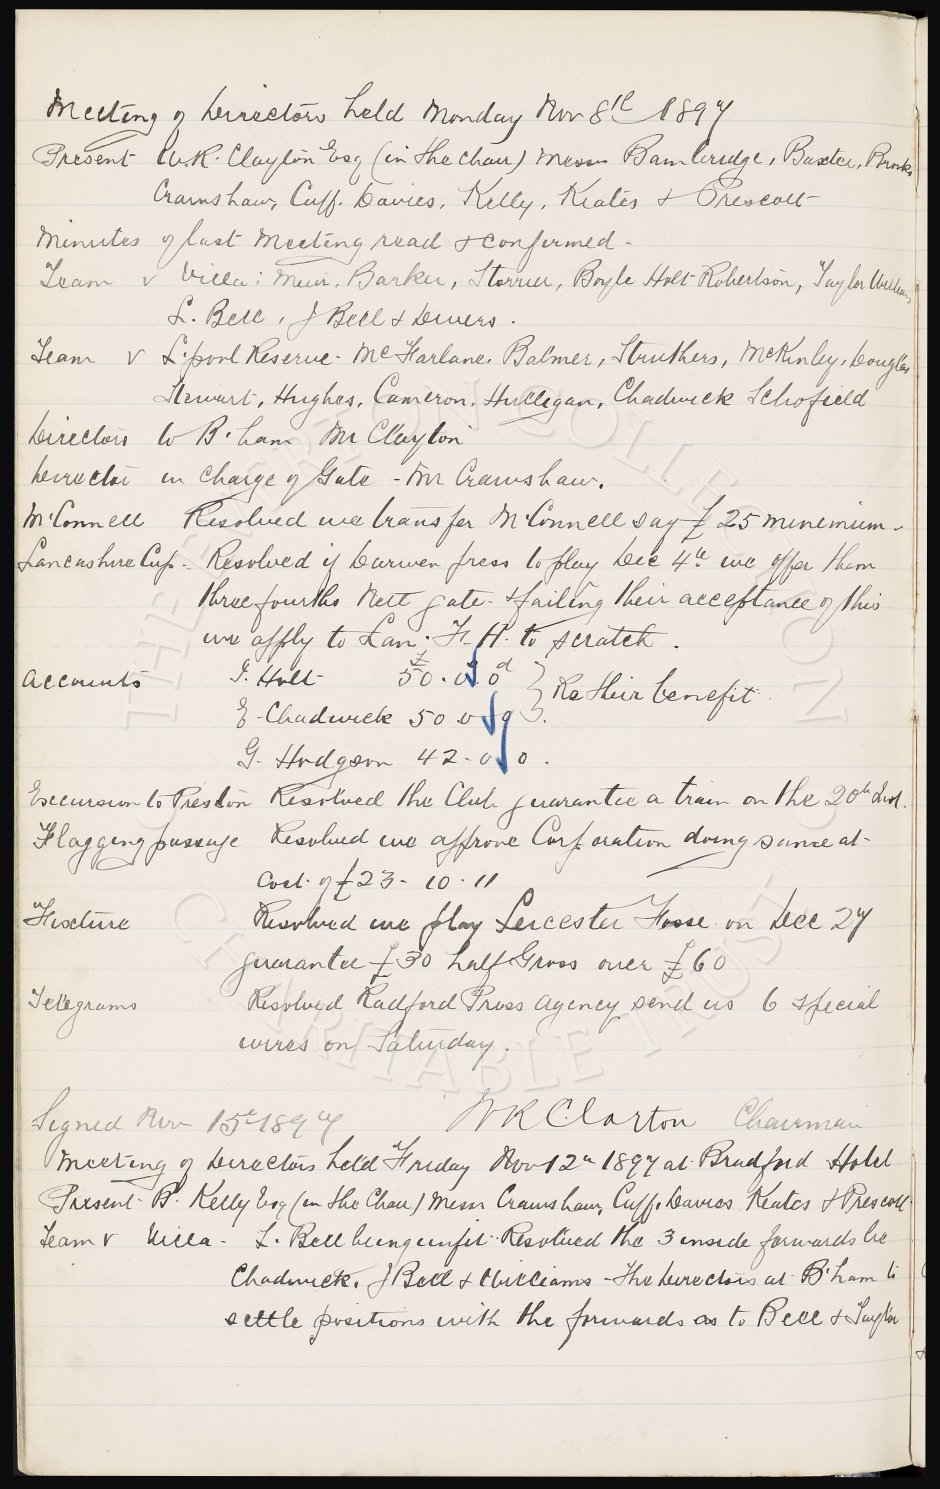 Meeting of Directors held Monday Nov 8th 1897
Present W.R. Clayton Esq (in the chair) Messrs Bainbridge, Baxter, Brooks
Crawshaw, Cuff, Davies, Kelly, Keates & Prescott
Minutes of last Meeting read & confirmed -
Team v Villa: Muir, Barker, Storrier, Boyle Holt Robertson, Taylor Williams
L. Bell, J Bell & Divers.
Team v L'pool Reserve - McFarlane, Balmer, Struthers, McKinley, Douglas
Stewart, Hughes, Cameron, Hulligan, Chadwick Schofield
Directors to B'ham Mr Clayton
Director in charge of Gate - Mr Crawshaw.
McConnell Resolved we transfer McConnell say £25 minimium -
Lancashire Cup - Resolved if Darwen press to play Dec 4th we offer them
three fourths Nett gate & failing their acceptance of this
we apply to Lan. F.A. to scratch.
Accounts J. Holt £50. 0s 0d } Re their benefit
E. Chadwick 50 0 0 }.
G. Hodgson 42 - 0 0.
Excursion to Preston Resolved the Club guarantee a train on the 20th Inst.
Flagging passage Resolved we approve Corporation doing same at
cost of £23 - 10 - 11
Fixture Resolved we play Leicester Fosse on Dec 27
guarantee £30 half Gross over £60
Telegrams Resolved Radford Press Agency send us 6 special
wires on Saturday.
Signed Nov 15th 1897 WR Clayton Chairman
Meeting of Directors held Friday Nov 12th 1897 at Bradford Hotel
Present B. Kelly Esq (in the Chair) Messrs Crawshaw, Cuff, Davies Keates & Prescott
Team v Villa - L. Bell being unfit Resolved the 3 inside forwards be
Chadwick, J Bell & Williams - the Directors at B'ham to
settle positions with the forwards as to Bell & Taylor
THE EVERTON COLLECTION
CHARITABLE TRUST